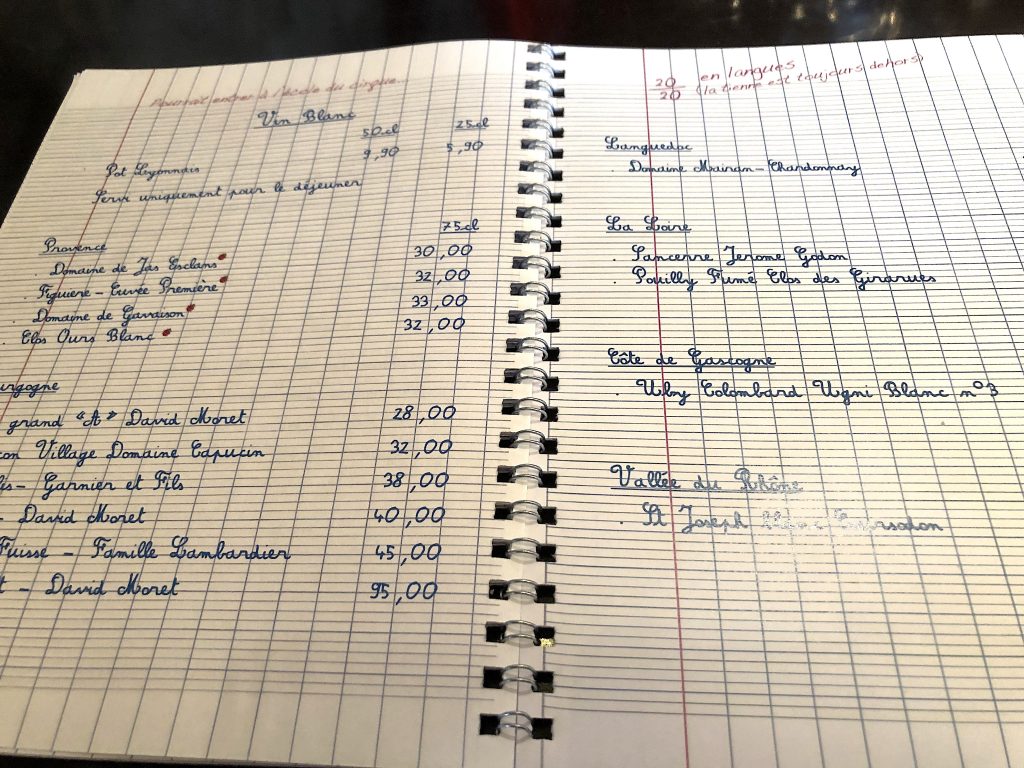 Pourrait entrer à l'école du cirque...
Vin Blanc
50cl 25cl
Pot Lyonnais 9,90 5,90
Servi uniquement pour le déjeuner
75cl
Provence
. Domaine de Jas Esclans 30,00
. Figuière - Cuvée Première 32,00
. Domaine de Gavaison 33,00
. Clos Ours Blanc 32,00
urgogne
grand "A" David Moret 28,00
con Village Domaine Capucin 32,00
lis - Garnier et Fils 38,00
- David Moret 40,00
Fuisse - Famille Lambardier 45,00
t - David Moret 95,00
20/20 en langues
(la tienne est toujours dehors)
Languedoc
. Domaine Mairan - Chardonnay
La Loire
. Sancerre Jerome Godon
. Pouilly Fumé Clos des Girarues
Côte de Gascogne
. Uby Colombard Ugni Blanc n°3
Vallée du Rhône
. St Joseph blanc